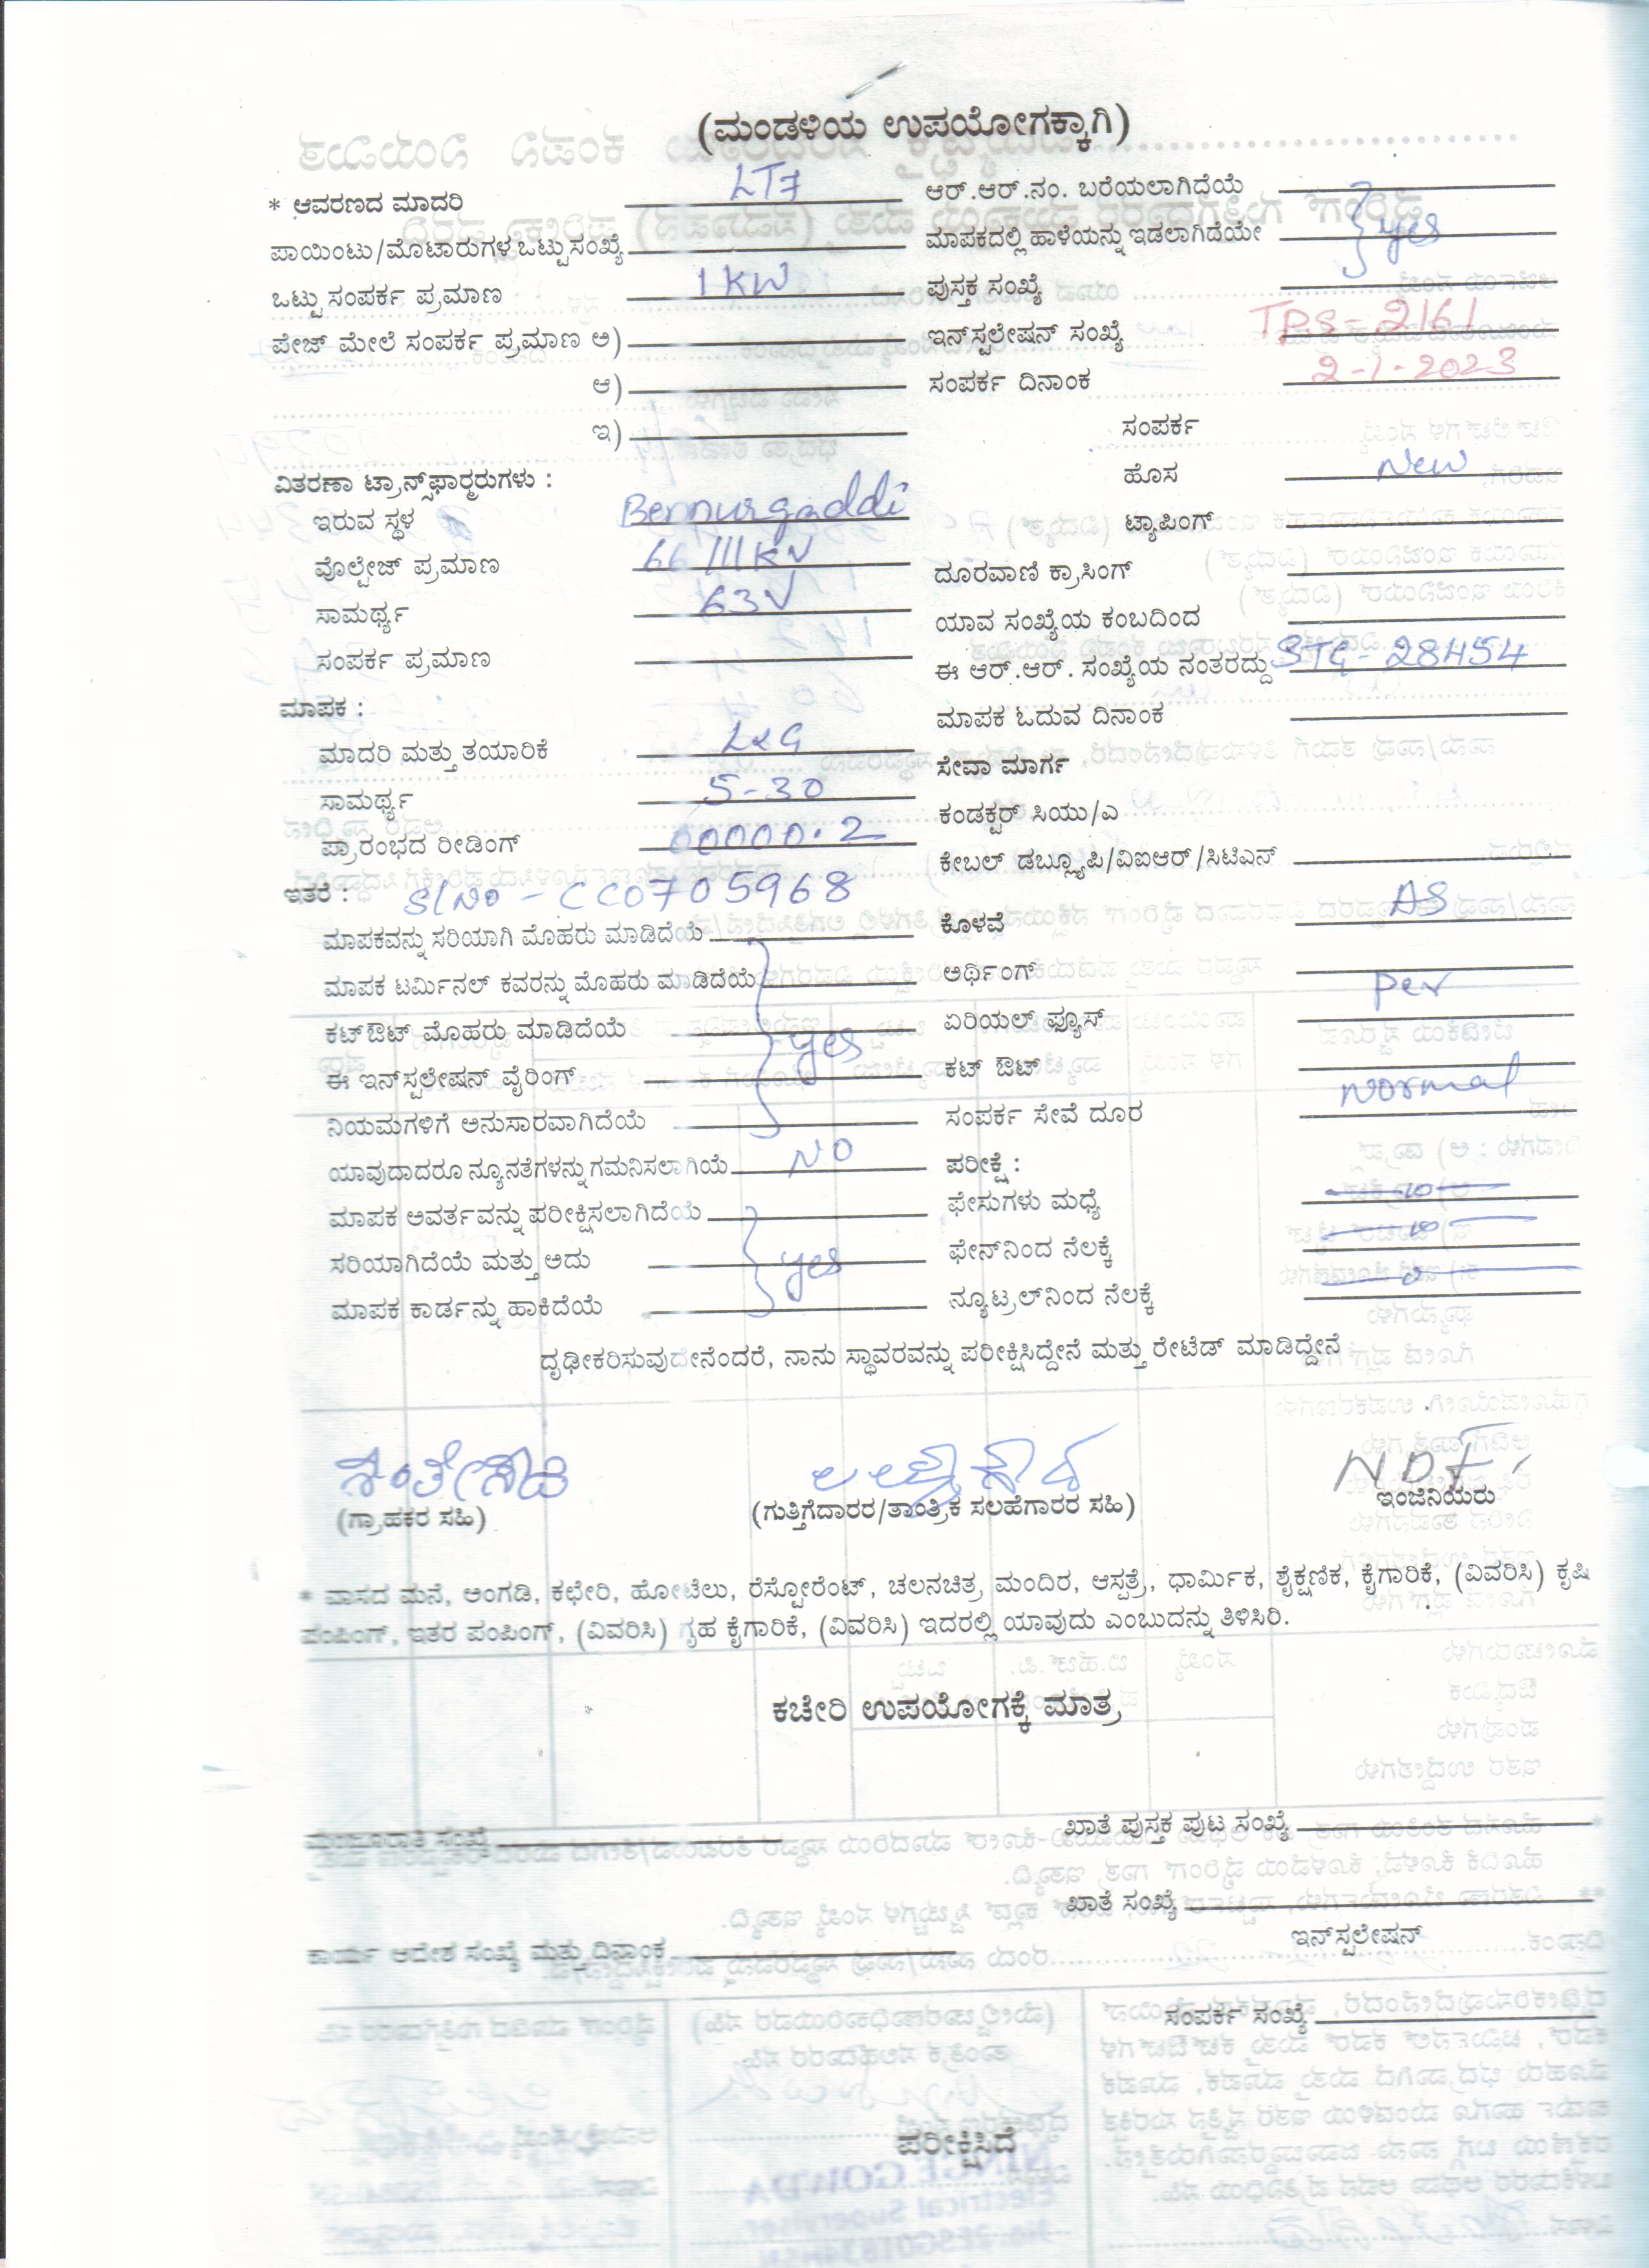 (ಮಂಡಳಿಯ ಉಪಯೋಗಕ್ಕಾಗಿ)
* ಆವರಣದ ಮಾದರಿ LT7
ಪಾಯಿಂಟು/ಮೊಟಾರುಗಳ ಒಟ್ಟು ಸಂಖ್ಯೆ
ಒಟ್ಟು ಸಂಪರ್ಕ ಪ್ರಮಾಣ 1KW
ಪೇಜ್ ಮೇಲೆ ಸಂಪರ್ಕ ಪ್ರಮಾಣ ಅ)
ಆ)
ಇ)
ವಿತರಣಾ ಟ್ರಾನ್ಸ್‌ಫಾರ್ಮರುಗಳು :
ಇರುವ ಸ್ಥಳ Bennurgaddi
ವೊಲ್ಟೇಜ್ ಪ್ರಮಾಣ 66/11KV
ಸಾಮರ್ಥ್ಯ 63V
ಸಂಪರ್ಕ ಪ್ರಮಾಣ
ಮಾಪಕ :
ಮಾದರಿ ಮತ್ತು ತಯಾರಿಕೆ L&G
ಸಾಮರ್ಥ್ಯ 5-30
ಪ್ರಾರಂಭದ ರೀಡಿಂಗ್ 00000.2
ಇತರೆ : Sl No - CC0705968
ಮಾಪಕವನ್ನು ಸರಿಯಾಗಿ ಮೊಹರು ಮಾಡಿದೆಯೆ
ಮಾಪಕ ಟರ್ಮಿನಲ್ ಕವರನ್ನು ಮೊಹರು ಮಾಡಿದೆಯೆ
ಕಟ್‌ಔಟ್ ಮೊಹರು ಮಾಡಿದೆಯೆ yes
ಈ ಇನ್‌ಸ್ಟಲೇಷನ್ ವೈರಿಂಗ್
ನಿಯಮಗಳಿಗೆ ಅನುಸಾರವಾಗಿದೆಯೆ
ಯಾವುದಾದರೂ ನ್ಯೂನತೆಗಳನ್ನು ಗಮನಿಸಲಾಗಿಯೆ NO
ಮಾಪಕ ಅವರ್ತವನ್ನು ಪರೀಕ್ಷಿಸಲಾಗಿದೆಯೆ
ಸರಿಯಾಗಿದೆಯೆ ಮತ್ತು ಅದು yes
ಮಾಪಕ ಕಾರ್ಡನ್ನು ಹಾಕಿದೆಯೆ
ಆರ್.ಆರ್.ನಂ. ಬರೆಯಲಾಗಿದೆಯೆ
ಮಾಪಕದಲ್ಲಿ ಹಾಳೆಯನ್ನು ಇಡಲಾಗಿದೆಯೇ yes
ಪುಸ್ತಕ ಸಂಖ್ಯೆ
ಇನ್‌ಸ್ಟಲೇಷನ್ ಸಂಖ್ಯೆ TPS-2161
ಸಂಪರ್ಕ ದಿನಾಂಕ 2-1-2023
ಸಂಪರ್ಕ
ಹೊಸ New
ಟ್ಯಾಪಿಂಗ್
ದೂರವಾಣಿ ಕ್ರಾಸಿಂಗ್
ಯಾವ ಸಂಖ್ಯೆಯ ಕಂಬದಿಂದ
ಈ ಆರ್.ಆರ್. ಸಂಖ್ಯೆಯ ನಂತರದ್ದು STG-28454
ಮಾಪಕ ಓದುವ ದಿನಾಂಕ
ಸೇವಾ ಮಾರ್ಗ
ಕಂಡಕ್ಟರ್ ಸಿಯು/ಎ
ಕೇಬಲ್ ಡಬ್ಲ್ಯೂಪಿ/ವಿಐಆರ್/ಸಿಟಿಎಸ್
ಕೊಳವೆ AS
ಅರ್ಥಿಂಗ್
ಏರಿಯಲ್ ಫ್ಯೂಸ್ per
ಕಟ್ ಔಟ್
ಸಂಪರ್ಕ ಸೇವೆ ದೂರ Normal
ಪರೀಕ್ಷೆ :
ಫೇಸುಗಳು ಮಧ್ಯೆ
ಫೇನ್‌ನಿಂದ ನೆಲಕ್ಕೆ
ನ್ಯೂಟ್ರಲ್‌ನಿಂದ ನೆಲಕ್ಕೆ
ದೃಢೀಕರಿಸುವುದೇನೆಂದರೆ, ನಾನು ಸ್ಥಾವರವನ್ನು ಪರೀಕ್ಷಿಸಿದ್ದೇನೆ ಮತ್ತು ರೇಟೆಡ್ ಮಾಡಿದ್ದೇನೆ
(ಗ್ರಾಹಕರ ಸಹಿ) (ಗುತ್ತಿಗೆದಾರರ/ತಾಂತ್ರಿಕ ಸಲಹೆಗಾರರ ಸಹಿ) ಇಂಜಿನಿಯರು
* ವಾಸದ ಮನೆ, ಅಂಗಡಿ, ಕಛೇರಿ, ಹೋಟೆಲು, ರೆಸ್ಟೋರೆಂಟ್, ಚಲನಚಿತ್ರ ಮಂದಿರ, ಆಸ್ಪತ್ರೆ, ಧಾರ್ಮಿಕ, ಶೈಕ್ಷಣಿಕ, ಕೈಗಾರಿಕೆ, (ವಿವರಿಸಿ) ಕೃಷಿ
ಪಂಪಿಂಗ್, ಇತರ ಪಂಪಿಂಗ್, (ವಿವರಿಸಿ) ಗೃಹ ಕೈಗಾರಿಕೆ, (ವಿವರಿಸಿ) ಇದರಲ್ಲಿ ಯಾವುದು ಎಂಬುದನ್ನು ತಿಳಿಸಿರಿ.
ಕಚೇರಿ ಉಪಯೋಗಕ್ಕೆ ಮಾತ್ರ
ಮಂಜೂರಾತಿ ಸಂಖ್ಯೆ ಖಾತೆ ಪುಸ್ತಕ ಪುಟ ಸಂಖ್ಯೆ
ಖಾತೆ ಸಂಖ್ಯೆ
ಕಾರ್ಯ ಆದೇಶ ಸಂಖ್ಯೆ ಮತ್ತು ದಿನಾಂಕ ಇನ್‌ಸ್ಟಲೇಷನ್
ಸಂಪರ್ಕ ಸಂಖ್ಯೆ
ಪರೀಕ್ಷಿಸಿದೆ